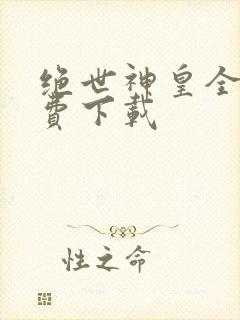 绝世神皇全
费下载
性之命